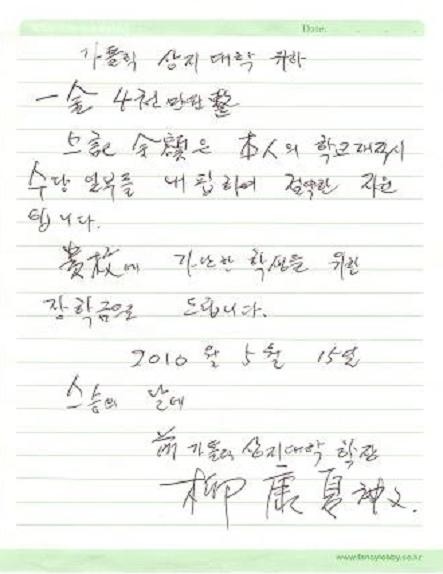 Date.
가톨릭 상지 대학 귀하
一金 4천만원整
上記 金額은 本人의 학교재직시
수당 일부를 내핍하여 절약한 지원
입니다.
貴校에 가난한 학생들을 위한
장학금으로 드립니다.
2010 월 5월 15일
스승의 날에
前 가톨릭 상지대학 학장
柳康夏 神父.
www.fancylobby.co.kr